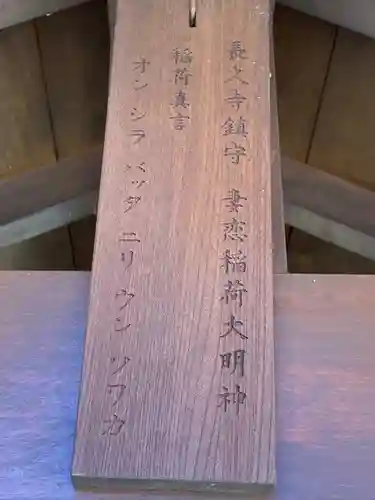 長久寺鎮守 妻恋稲荷大明神
稲荷真言
オン シラ バッタ ニリ ウン ソワカ